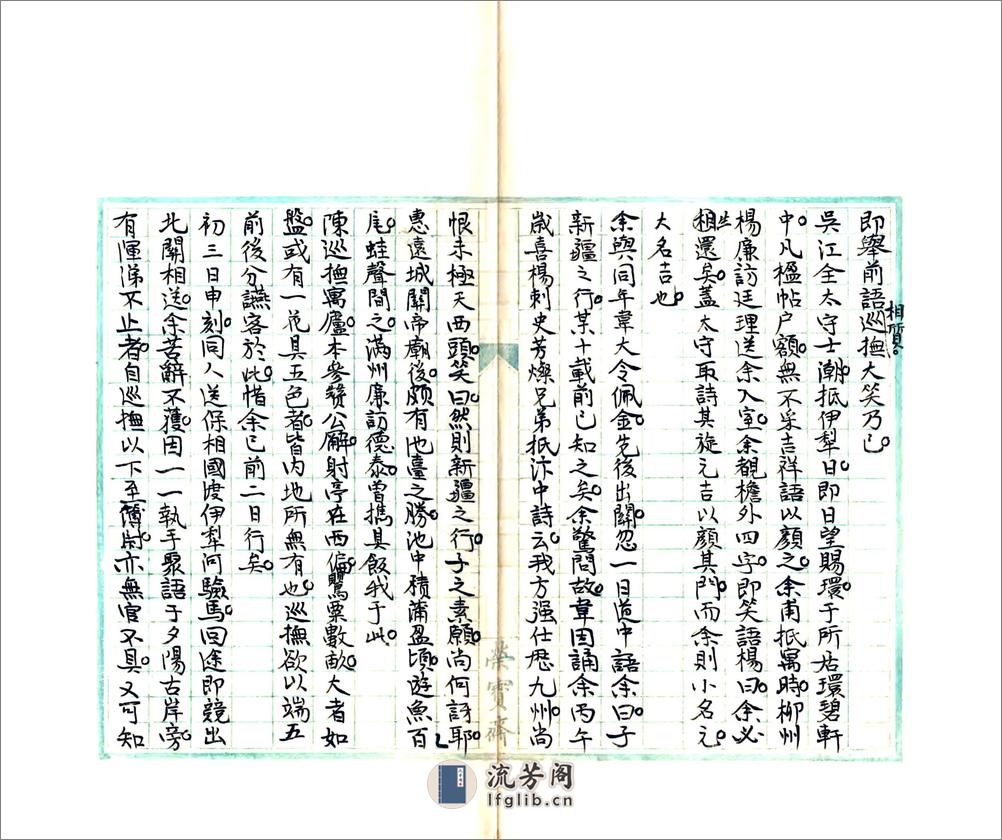 即舉前語巡撫大笑乃已。
相質。
吳江全太守士潮抵伊犁日。即日望賜環。于所居環碧軒
中。凡楹帖户額。無不采吉祥語以顏之。余甫抵寓時。柳州
楊廉訪廷理送余入室。余覩檐外四字。即笑語楊曰。余必
相還矣。蓋太守取詩其旋元吉以顏其門。而余則小名元
出
大名吉也。
余與同年韋大令佩金先後出關。忽一日道中語余曰。子
新疆之行。某十載前已知之矣。余驚問故。韋因誦余丙午
歲喜楊刺史芳燦兄弟抵汴中詩云。我方强仕歷九州。尚
恨未極天西頭。笑曰。然則新疆之行。子之素願。尚何訝耶
惠遠城關帝廟後。頗有池臺之勝。池中積蒲盈頃。遊魚百
尾。蛙聲間之。滿州廉訪德泰。曾攜具飯我于此。
陳巡撫寓廬。本參贊公廨。射亭在西偏。鶯粟數畝。大者如
盤。或有一花具五色者。皆内地所無有也。巡撫欲以端五
前後分讌客於此。惜余已前二日行矣。
初三日申刻。同人送保相國渡伊犁河驗馬。回途即競出
北關相送。余苦辭不獲。因一一執手聚語于夕陽古岸。旁
有揮涕不止者。自巡撫以下至簿尉。亦無官不具。又可知
榮寶齋
流芳阁
lfglib.cn